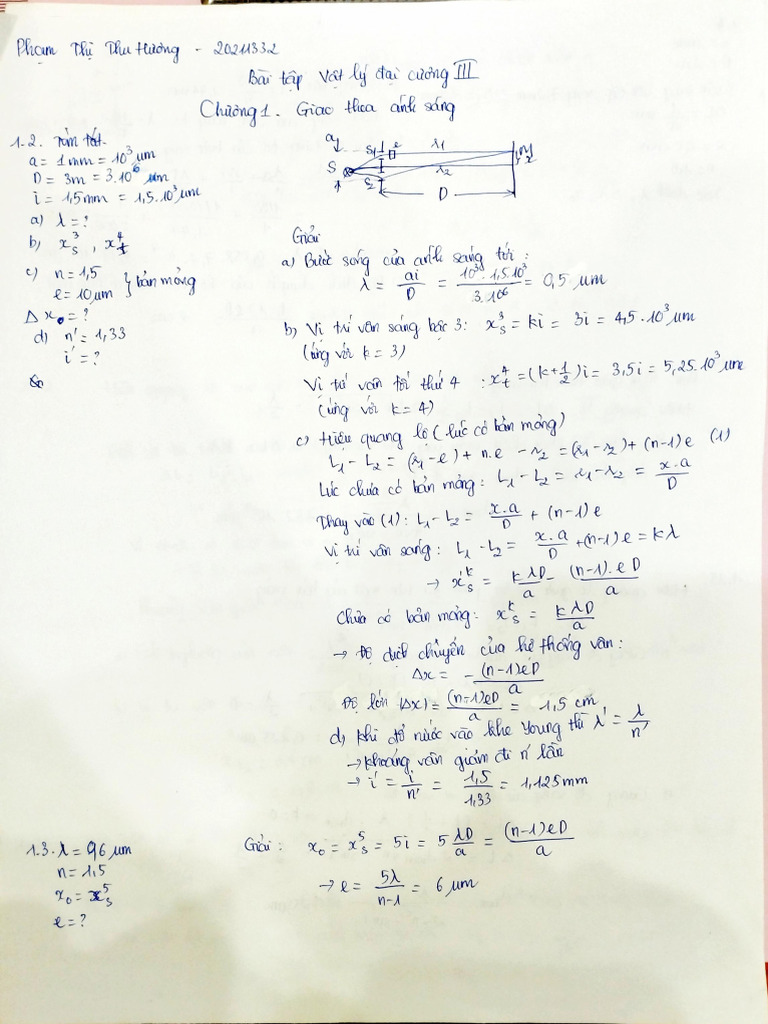 Phạm Thị Thu Hương - 20211332
Bài tập Vật lý đại cương III
Chương 1. Giao thoa ánh sáng
1.2. Tóm tắt.
a = 1mm = 10³ µm
D = 3m = 3.10⁶ µm
i = 1,5mm = 1,5.10³ µm
a) λ = ?
b) xₛ³, xₜ⁴
c) n = 1,5
e = 10µm } bản mỏng
Δx₀ = ?
d) n' = 1,33
i' = ?
a S S₁ S₂ e r₁ r₂ D x
Giải
a) Bước sóng của ánh sáng tới:
λ = ai/D = 10³.1,5.10³/3.10⁶ = 0,5 µm
b) Vị trí vân sáng bậc 3: xₛ³ = ki = 3i = 4,5.10³ µm
(ứng với k = 3)
Vị trí vân tối thứ 4 : xₜ⁴ = (k+1/2)i = 3,5i = 5,25.10³ µm
(ứng với k = 4)
c) Hiệu quang lộ (lúc có bản mỏng)
L₁ - L₂ = (r₁ - e) + n.e - r₂ = (r₁ - r₂) + (n-1)e (1)
Lúc chưa có bản mỏng: L₁ - L₂ = r₁ - r₂ = x.a/D
Thay vào (1): L₁ - L₂ = x.a/D + (n-1)e
Vị trí vân sáng: L₁ - L₂ = x.a/D + (n-1)e = kλ
→ x'ₛᵏ = kλD/a - (n-1).eD/a
Chưa có bản mỏng: xₛᵏ = kλD/a
→ Độ dịch chuyển của hệ thống vân:
Δx = -(n-1)eD/a
Độ lớn |Δx| = (n-1)eD/a = 1,5 cm
d) Khi đổ nước vào khe Young thì λ' = λ/n'
→ Khoảng vân giảm đi n' lần
→ i' = i/n' = 1,5/1,33 = 1,125mm
1.3. λ = 0,6 µm
n = 1,5
x₀ = xₛ⁵
e = ?
Giải: x₀ = xₛ⁵ = 5i = 5 λD/a = (n-1)eD/a
→ e = 5λ/n-1 = 6 µm